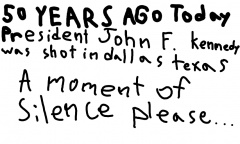 50 YEARS AGO Today
President John F. kennedy
was shot in dallas texas
A moment of
Silence please...